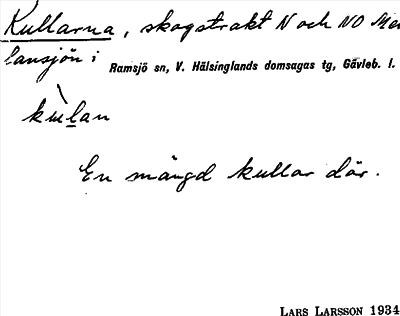 Kullarna, skogstrakt N och NO Mel
lansjön i Ramsjö sn, V. Hälsinglands domsagas tg, Gävleb. l.
kùlan
En mängd kullar där.
LARS LARSSON 1934